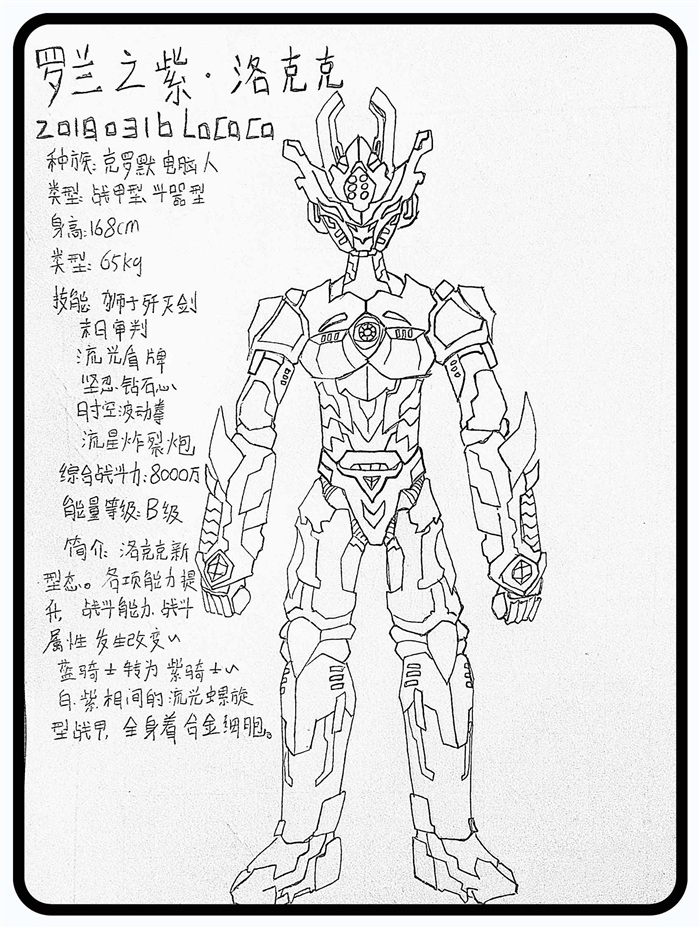 罗兰之紫·洛克克
20180316 LaCaCa
种族:克罗默电脑人
类型:战甲型、斗器型
身高:168cm
类型:65kg
技能 狮子歼灭剑
末日审判
流光盾牌
坚忍钻石心
时空波动拳
流星炸裂炮
综合战斗力:8000万
能量等级:B级
简介:洛克克新
型态。各项能力提
升,战斗能力、战斗
属性发生改变~
蓝骑士转为紫骑士~
白、紫相间的流光螺旋
型战甲,全身着合金细胞。